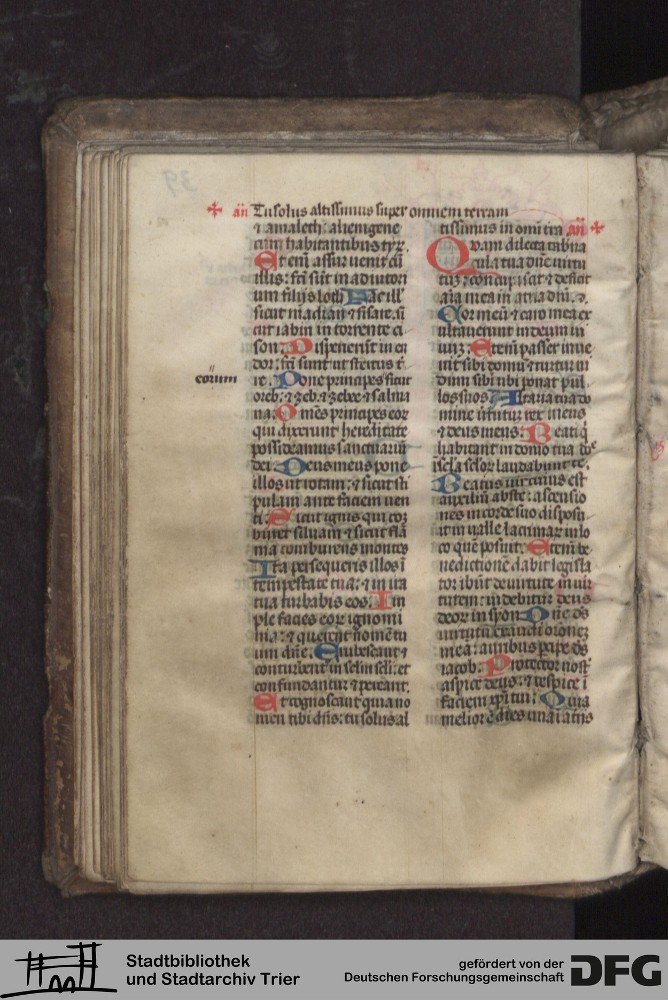 39
✠ an̄ Tu solus altissimus super omnem terram
⁊ amalech: alienigene
cum habitantibus tyr.
Eteni assur uenit cū
illis: fc̄i sūt in adiutori
um filijs loth. Fac ill'
sicut madian ⁊ sisare. si
cut iabin in torrente ci
son. Disperierūt in en
dor: fc̄i sunt ut stercus t'
re. Pone principes sicut
eorum
oreb. ⁊ zeb. ⁊ zebee ⁊ salma
na. Omēs principes eor
qui dixerunt hereditate
possideamus sanctuariū
dei. Deus meus pone
illos ut rotam: ⁊ sicut sti
pulam ante faciem uen
ti. Sicut ignis qui cōz
burit siluam ⁊ sicut flā
ma comburens montes
Ita persequeris illos ī
tempestate tua: ⁊ in ira
tua turbabis eos. Im
ple facies eor ignomi
nia: ⁊ querent nomē tu
um dn̄e. Erubescant ⁊
conturbent' in sclm scli: et
confundantur ⁊ pereant.
Et cognoscant quia no
men tibi dn̄s: tu solus al
tissimus in omī tra an̄ ✠
Quam dilecta tabna
cula tua dn̄e uirtu
tuz: concupiscit ⁊ deficit
aīa mea in atria dn̄i.
Cor meū ⁊ caro mea ex
ultauerunt in deum ui
uuz. Etem passer inue
nit sibi domū ⁊ turtur ni
dum sibi ubi ponat pul
los suos. Altaria tua do
mine ūtutum rex meus
⁊ deus meus. Beati q̇
habitant in domo tua dn̄e
ī scla sclor laudabunt te.
Beatus uir cuius est
auxiliū abs te: ascensio
nes in corde suo disposu
it in ualle lacrimar in lo
co quē posuit. Etenī be
nedictionē dabit legisla
tor ibūt de uirtute in uir
tutem: uidebitur deus
deor in syon. Dn̄e ds̄
uirtutū exaudi orōnez
mea: auribus pcipe ds̄
iacob. Protector nost'
aspice deus: ⁊ respice ī
faciem xp̄i tui. Quia
melior ē dies una ī atrijs
Stadtbibliothek
und Stadtarchiv Trier
gefördert von der
Deutschen Forschungsgemeinschaft
DFG